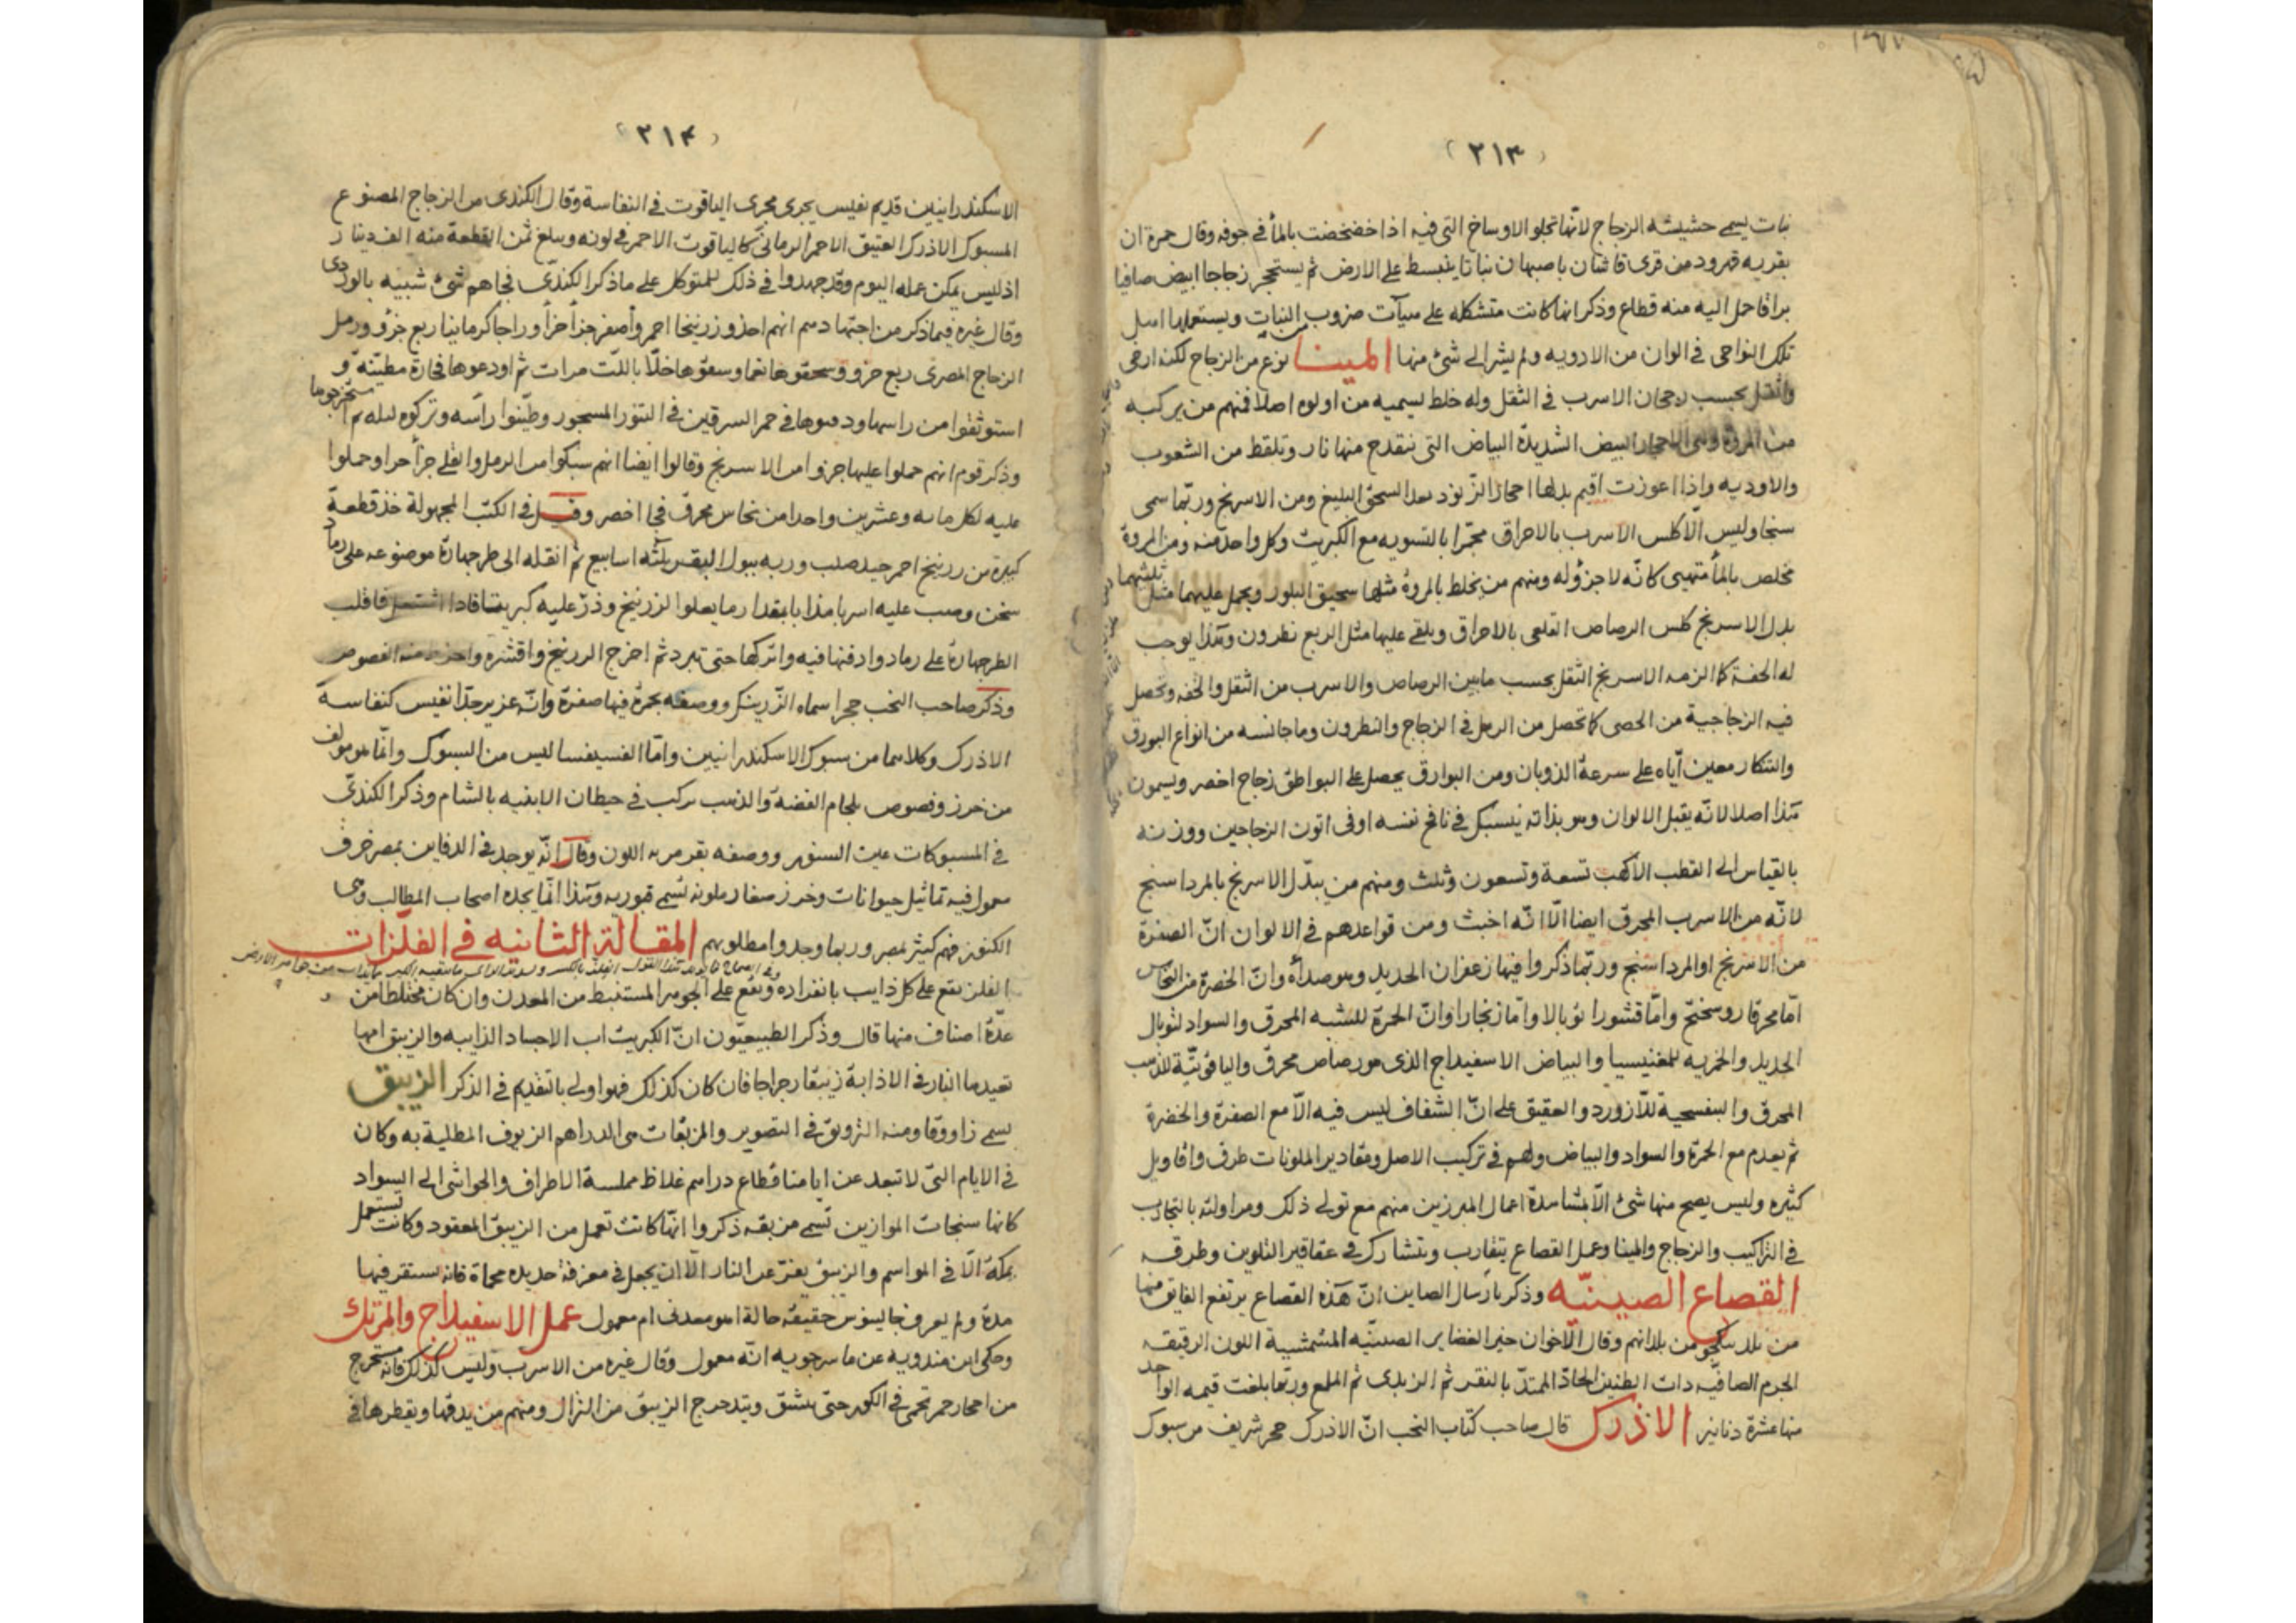 (٢١٣)
نبات يسمى حشيشه الزجاج لانّها تجلو الاوساخ التى فيه اذا خضخضت بالمأ في جوفه وقال حمزة ان
بقريه قهرود من قرى قاشان باصبهان نباتا ينبسط على الارض ثم يستحجر زجاجا ابيض صافيا
براقا حمل اليه منه قطاع وذكر انها كانت متشكله على هيآت ضروب من النبات ويستعملها اهل
تلك النواحى فى الوان من الادويه ولم يشر الى شئ منها المينا نوع من الزجاج لكنه ارخى
واثقل بحسب رجحان الاسرب فى الثقل وله خلط يسميه من اولوه اصلا فمنهم من يركبه
من المروة وهى الاحجار البيض الشديدة البياض التى تنقدح منها نار وتلقط من الشعوب
والاوديه واذا اعوزت اقيم بدلها احجار الزنود بعد السحق البليغ ومن الاسرنج وربّما سمى
سنجا وليس الّا كلس الاسرب بالاحراق محمّرا بالتسويه مع الكبريت وكل واحد منه ومن المروة
مخلص بالمأ متهبى كانّه لا جزؤ له ومنهم من يخلط بالمروة مثلها سحيق البلور ويحمل عليهما مثل ثلثيهما
بدل الاسرنج كلس الرصاص القلعى بالاحراق ويلقى عليها مثل الربع نطرون وهذا يوجب
له الخفة كما الزمه الاسرنج الثقل بحسب ما بين الرصاص والاسرب من الثقل والخفه ويحصل
فيه الزجاجية من الحصى كما تحصل من الرمل فى الزجاج والنطرون وما جانسه من انواع البورق
والتنكار معين ايّاه على سرعة الذوبان ومن البوارق يحصل على البواطق زجاج اخضر ويسمون
هذا اصلا لانّه يقبل الالوان وهو بذاته ينسبك فى نافخ نفسه او فى اتون الزجاجين ووزنه
بالقياس الى القطب الاكهب تسعة وتسعون وثلث ومنهم من يبدّل الاسرنج بالمرداسنج
لانّه من الاسرب المحرق ايضا الّا انّه اخبث ومن قواعدهم فى الالوان انّ الصفرة
من الاسرنج او المرداسنج وربّما ذكروا فيها زعفران الحديد وهو صدأه وانّ الخضرة من النحاس
امّا محرقا روسختج وامّا قشورا توبالا وامّا زنجارا وانّ الحمرة للشبه المحرق والسواد لتوبال
الحديد والخمريه للمغنيسيا والبياض الاسفيداج الذى هو رصاص محرق والياقوتيّة للذهب
المحرق والبنفسجية للّازورد والعقيق على انّ الشفاف ليس فيه الّا مع الصفرة والخضرة
ثم يعدم مع الحمرة والسواد والبياض ولهم فى تركيب الاصل ومقادير الملونات طرق واقاويل
كثيره وليس يصح منها شئ الّا بمشاهدة اعمال المبرزين منهم مع تولى ذلك ومزاولته بالتجارب
فى التراكيب والزجاج والمينا وعمل القصاع يتقارب ويتشارك فى عقاقير التلوين وطرقه
القصاع الصينيّه وذكر بارسال الصاين انّ هذه القصاع يرتفع الفايق منها
من بلد ينكجو من بلدانهم وقال الاخوان خير الغضاير الصينيّه المشمشية اللون الرقيقه
الجرم الصافيّه ذات الطنين الحادّ الممتدّ بالنقر ثم الزبدى ثم الملمع وربّما بلغت قيمه الواحد
منها عشرة دنانير الاذرك قال صاحب كتاب النخب انّ الاذرك حجر شريف من سبوك
(٢١٤)
الاسكندرانيين قديم نفيس يجرى مجرى الياقوت فى النفاسة وقال الكندى من الزجاج المصنوع
المسبوك الاذرك العتيق الاحمر الرمانى كالياقوت الاحمر فى لونه ويبلغ ثمن القطعة منه الف دينار
اذ ليس يمكن عمله اليوم وقد جهدوا فى ذلك للمتوكل على ما ذكر الكندىّ فجاهم شئ شبيه بالوردى
وقال غيره فيما ذكر من اجتهادهم انهم اخذوا زرنيخا احمر وأصفر جزأ جزأ وراجا كرمانيا ربع جزؤ ورمل
الزجاج المصرى ربع جزؤ وسحقوها نعما وسقوها خلّا باللتّ مرات ثم اودعوها فخارة مطيّنه و
استوثقوا من راسها ودسوها فى جمر السرقين فى التنور المسجور وطيّنوا راسه وتركوه ليله ثم استخرجوها
وذكر قوم انهم حملوا عليها جزوا من الاسرنج وقالوا ايضا انهم سبكوا من الرمل والقلى جزأ جزأ وحملوا
عليه لكل مايه وعشرين واحدا من نحاس محرق فجا اخضر وقيل فى الكتب المجهولة خذ قطعة
كبيرة من زرنيخ احمر جيد صلب وربه ببول البقر ثلثه اسابيع ثم انقله الى طرجهارة موضوعه على رماد
سخن وصب عليه اسربا مذابا بمقدار ما يعلو الزرنيخ وذرّ عليه كبريتا فاذا اشتعل فاقلب
الطرجهارة على رماد وادفنها فيه واتركها حتى تبرد ثم اخرج الزرنيخ واقشره واخرط منه الفصوص
وذكر صاحب النخب حجرا سماه الزّرينك ووصفه بحمرة فيها صفرة وانّه عزيز جدّا نفيس كنفاسة
الاذرك وكلاهما من سبوك الاسكندرانيين وامّا الفسيفسا ليس من السبوك وانّما هو مولّف
من خرز وفصوص بلجام الفضة والذهب يركب فى حيطان الابنيه بالشام وذكر الكندىّ
فى المسبوكات عين السنور ووصفه بقرمزيه اللون وقال انّه يوجد فى الدفاين بمصر خزف
معمول فيه تماثيل حيوانات وخرز صغار ملونه تسمى قبوريه وهذا انّما يجده اصحاب المطالب وهى
الكنوز فهم كثير بمصر وربما وجدوا مطلوبهم المقالة الثانيه فى الفلزات
الفلز يقع على كل ذايب بانفراده ويقع على الجوهر المستنبط من المعدن وان كان مختلطا من
عدّة اصناف منها قال وذكر الطبيعيّون انّ الكبريت اب الاجساد الذايبه والزيبق امها
تعيدها النار فى الاذابة زيبقا رجراجا فان كان كذلك فهو اولى بالتقديم فى الذكر الزيبق
يسمى زاووقا ومنه التزويق فى التصوير والمزبقات هى الدراهم الزيوف المطلية به وكان
فى الايام التى لا تبعد عن ايامنا قطاع دراهم غلاظ مملسة الاطراف والحواشى الى السواد
كانها سنجات الموازين تسمى مزبقه ذكروا انّها كانت تعمل من الزيبق المعقود وكانت تستعمل
بمكة الّا فى المواسم والزيبق يفرّ عن النار الّا ان يجعل فى مغرفة حديده محماة فانه يستقر فيها
مدة ولم يعرف جالينوس حقيقة حالة اهو معدنى ام معمول عمل الاسفيداج والمرتك
وحكى ابن مندويه عن ماسرجويه انّه معمول وقال غيره من الاسرب وليس كذلك فانه مستخرج
من احجار حمر تحمى فى الكور حتى تنشق ويتدحرج الزيبق من النزال ومنهم من يدقها ويقطرها فى